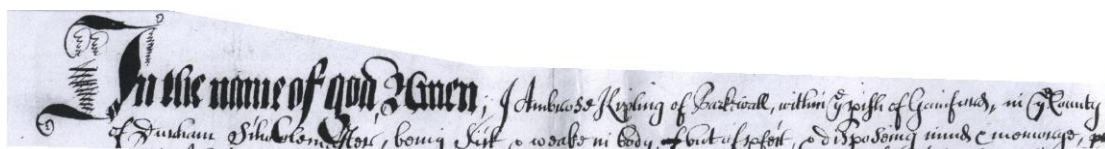 In the name of god, Amen, I Ambrose Kipling of Barkwall, within yͤ pish of Gainford, in yͤ County
of Durham Schoolemaster, being sick & weake in body, but of pfect, & disposeing minde & memorye,